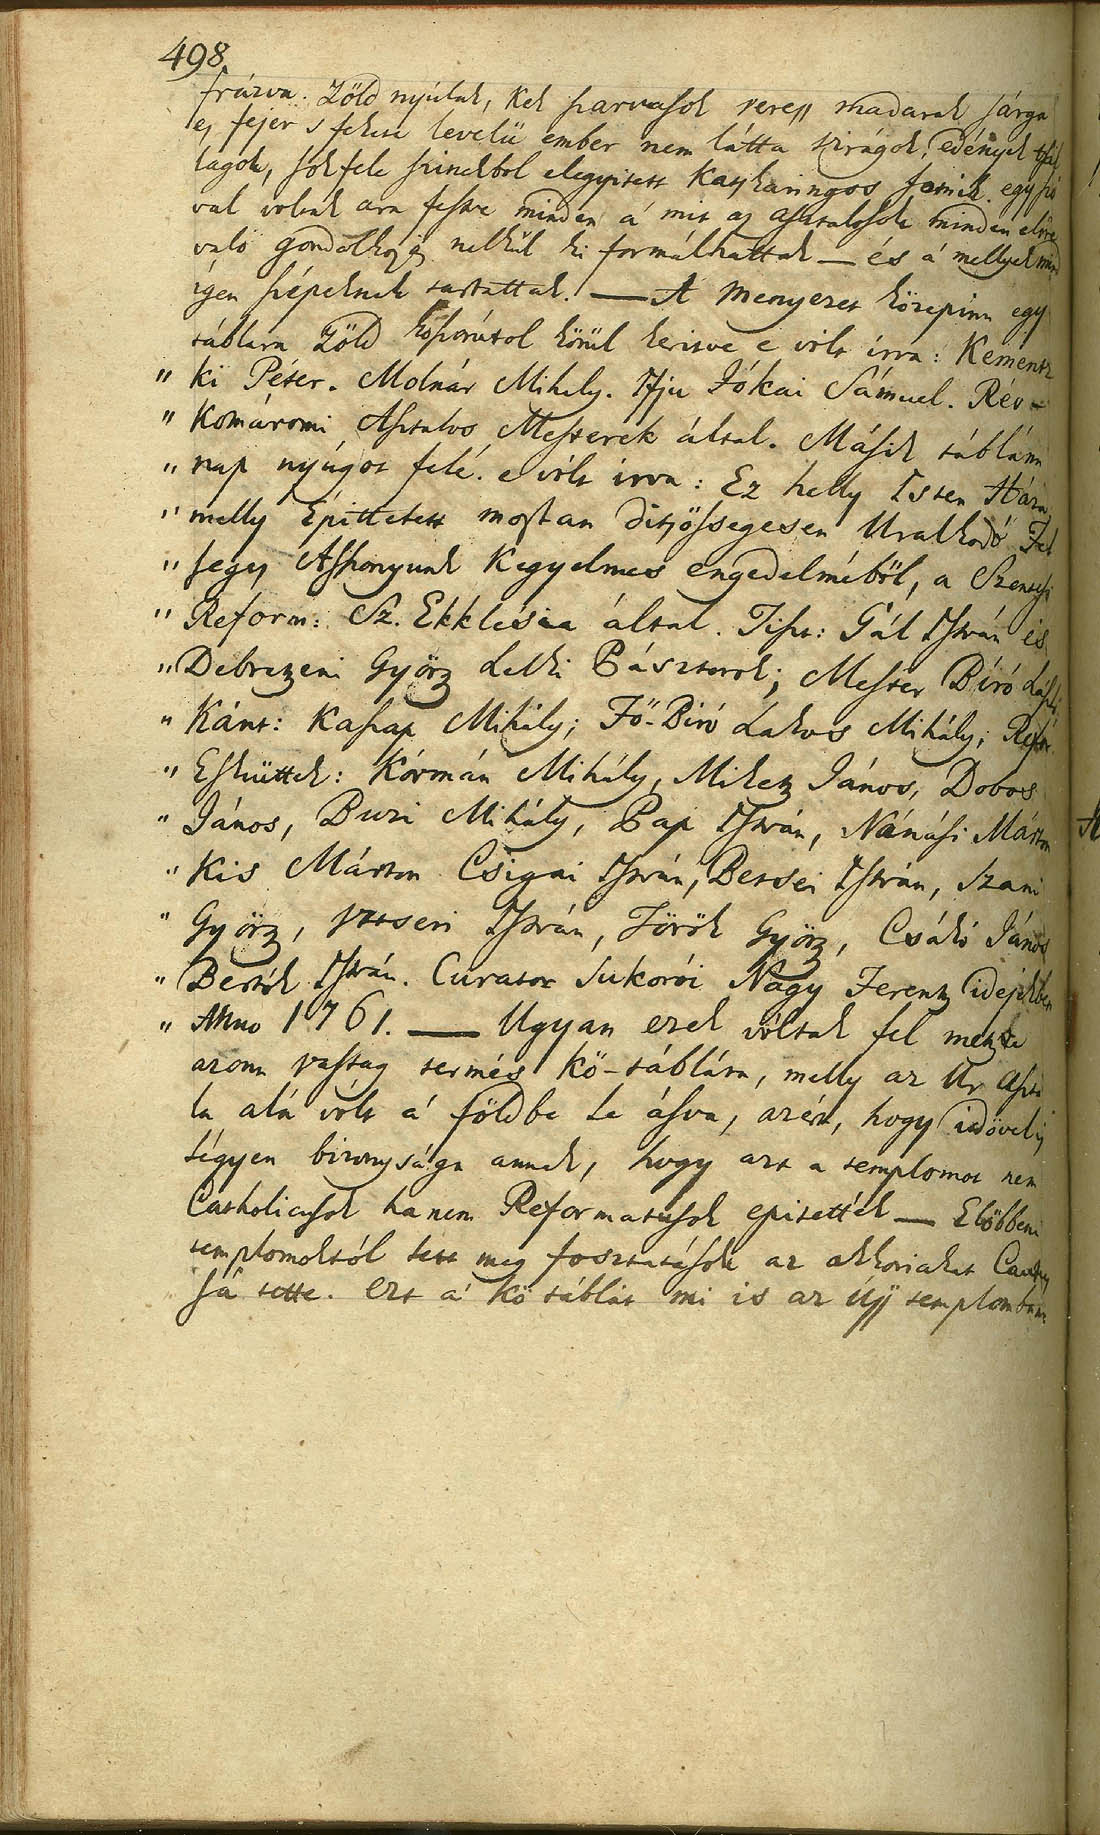 498
frázva. Zöld nyúlak, Kék szarvasok veress madarak sárga
és fejér s fekete levelü ember nem látta virágok, edények tsil
lagok, sokféle szinekböl elegyitett Katskaringos fémik. egy szó
val voltak arra festve minden a' mit az asztalosok minden elöre
való gondolkozás nelkül ki formálhattak — és a' mellyek min
igen szépeknek tartattak. — A Menyezet közepinn egy
táblara Zöld koszorútol körül keritve e vólt irva: Kementz
" ki Péter. Molnár Mihály. Ifju Jókai Sámuel. Rév-
" Komáromi Asztalos Mesterek által. Másik táblánn
" nap nyúgot felé. e vólt irva: Ez helly Isten Háza
" melly Epíttetett mostan ditsösségesen Uralkodó Fel
" segés Asszonyunk Kegyelmes engedelméböl, a Szentesi
" Reform: Sz. Ekklésia által. Tiszt: Gál István és
" Debretzeni György Lelki Pásztorok; Mester Bíró Lászl:
" Kánt: Kaszap Mihály; Fö-Biró Lakos Mihály; Refor
" Esküttek: Kórmán Mihály, Miketz János, Dobos
" János, Buzi Mihály, Pap István, Nánási Márton
" Kis Márton Csigai István, Betsei István, Szani
" György, Vetseri István, Török György, Csáki János
" Bertók István. Curator Sukorói Nagy Ferentz idejekben
" Anno 1761. — Ugyan ezek vóltak fel metzve
azonn vastag termés kö-táblára, melly az Úr aszta
la alá vólt a' földbe le ásva, azért, hogy idövel is
légyen bizonysága annak, hogy azt a templomot nem
Catholicusok hanem Reformatusok epitették — Elöbbeni
templomoktól lett meg fosztatások az akkoriakat
sá tette. Ezt a' kö táblát mi is az Újj templombann